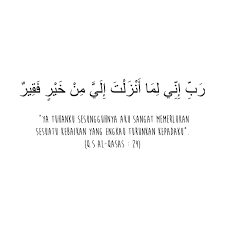 رَبِّ إِنِّي لِمَا أَنْزَلْتَ إِلَيَّ مِنْ خَيْرٍ فَقِيرٌ
"YA TUHANKU SESUNGGUHNYA AKU SANGAT MEMERLUKAN
SESUATU KEBAIKAN YANG ENGKAU TURUNKAN KEPADAKU".
(Q.S AL-QASAS : 24)